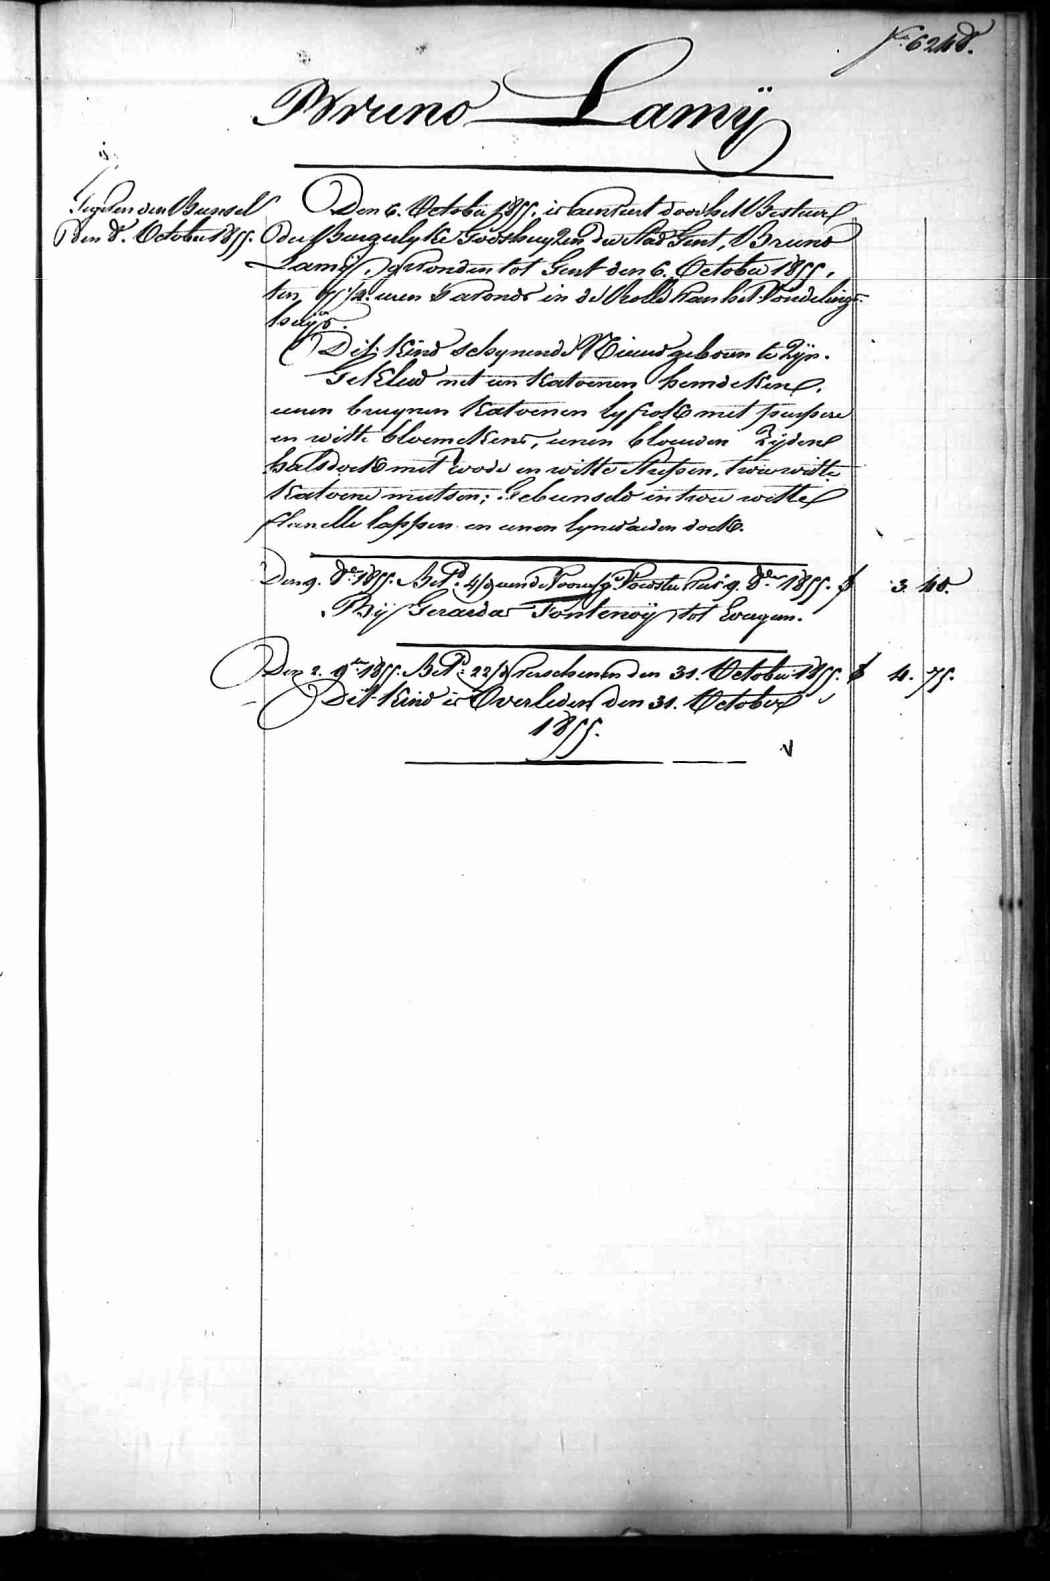 6248.
Bruno Lamÿ
Gegeven den Bunsel
den 8. October 1855.
Den 6. October 1855, is aenveert door het Bestuer
der Burgerlyke Godshuyzen der Stad Gent, Bruno
Lamÿ, gevonden tot Gent den 6. October 1855,
ten 6 1/2 uren 's avonds in de Rolle van het Vondelings-
huys.
Dit kind schynende Nieuw geboren te zyn.
Gekleed met een katoenen hemdeken,
eenen bruynen katoenen lyfrok met purpere
en witte bloemekens, eenen blauwen zyden
halsdoek met roode en witte streepen, twee witte
katoene mutsen; Gebunseld in twee witte
flanelle lappen en eenen lynwaeden doek.
Den 9. 8bre 1855. Bet.d voor 9. 8bre 1855. f 3. 40.
Bÿ Gerarda Fontenoÿ tot Evergem.
Den 2. 9bre 1855. Bet.d 22/ verschenen den 31. October 1855. f 4. 75.
Dit kind is Overleden den 31. October
1855.